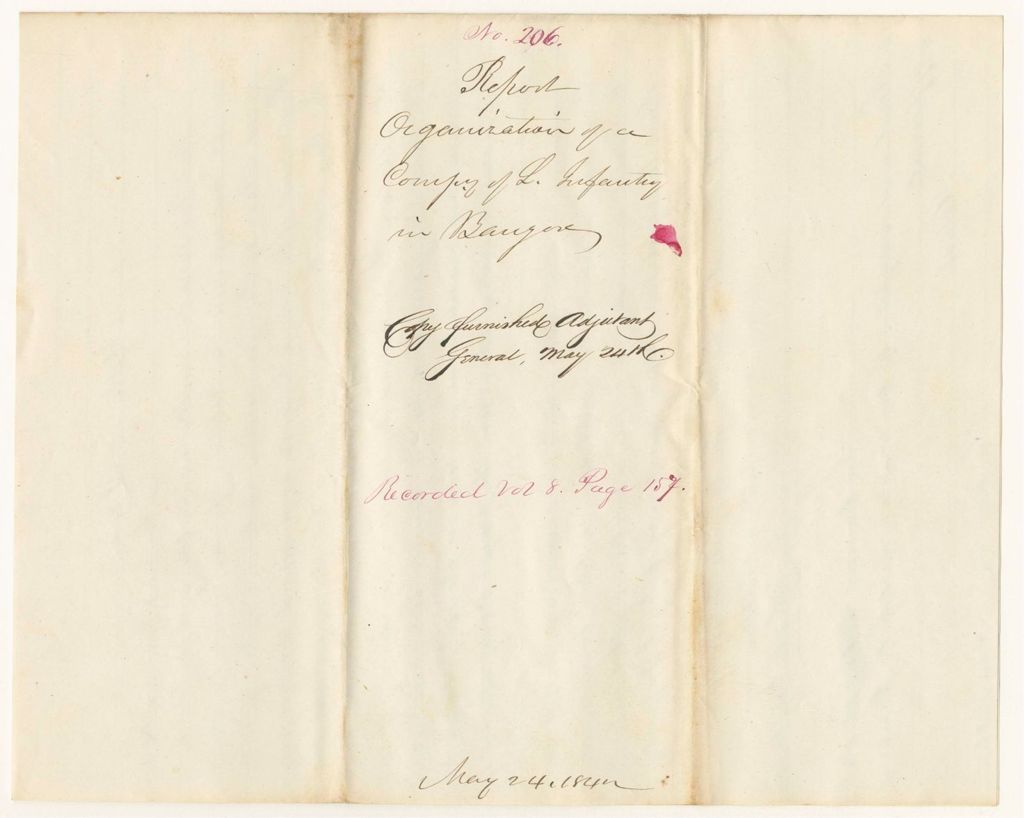 No. 206.
Report
Organization of a
Compy of L. Infantry
in Bangor
Copy furnished Adjutant
General, May 24th.
Recorded Vol 8. Page 157.
May 24. 184